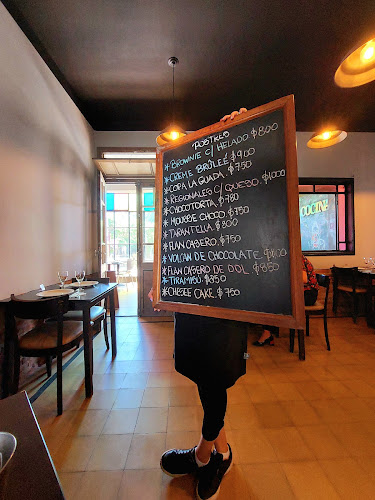 POSTRES
*BROWNIE C/ HELADO $800
*CREME BRULEÉ $900
*COPA LA GUADA $750
*REGIONALES C/ QUESO $750
*CHOCOTORTA $780
*MOUSSE CHOCO $750
*TARANTELLA $800
*FLAN CASERO $750
*VOLCAN DE CHOCOLATE
*FLAN CASERO DE DDL $850
*TIRAMISÚ $850
*CHEESE CAKE $750
COCINA